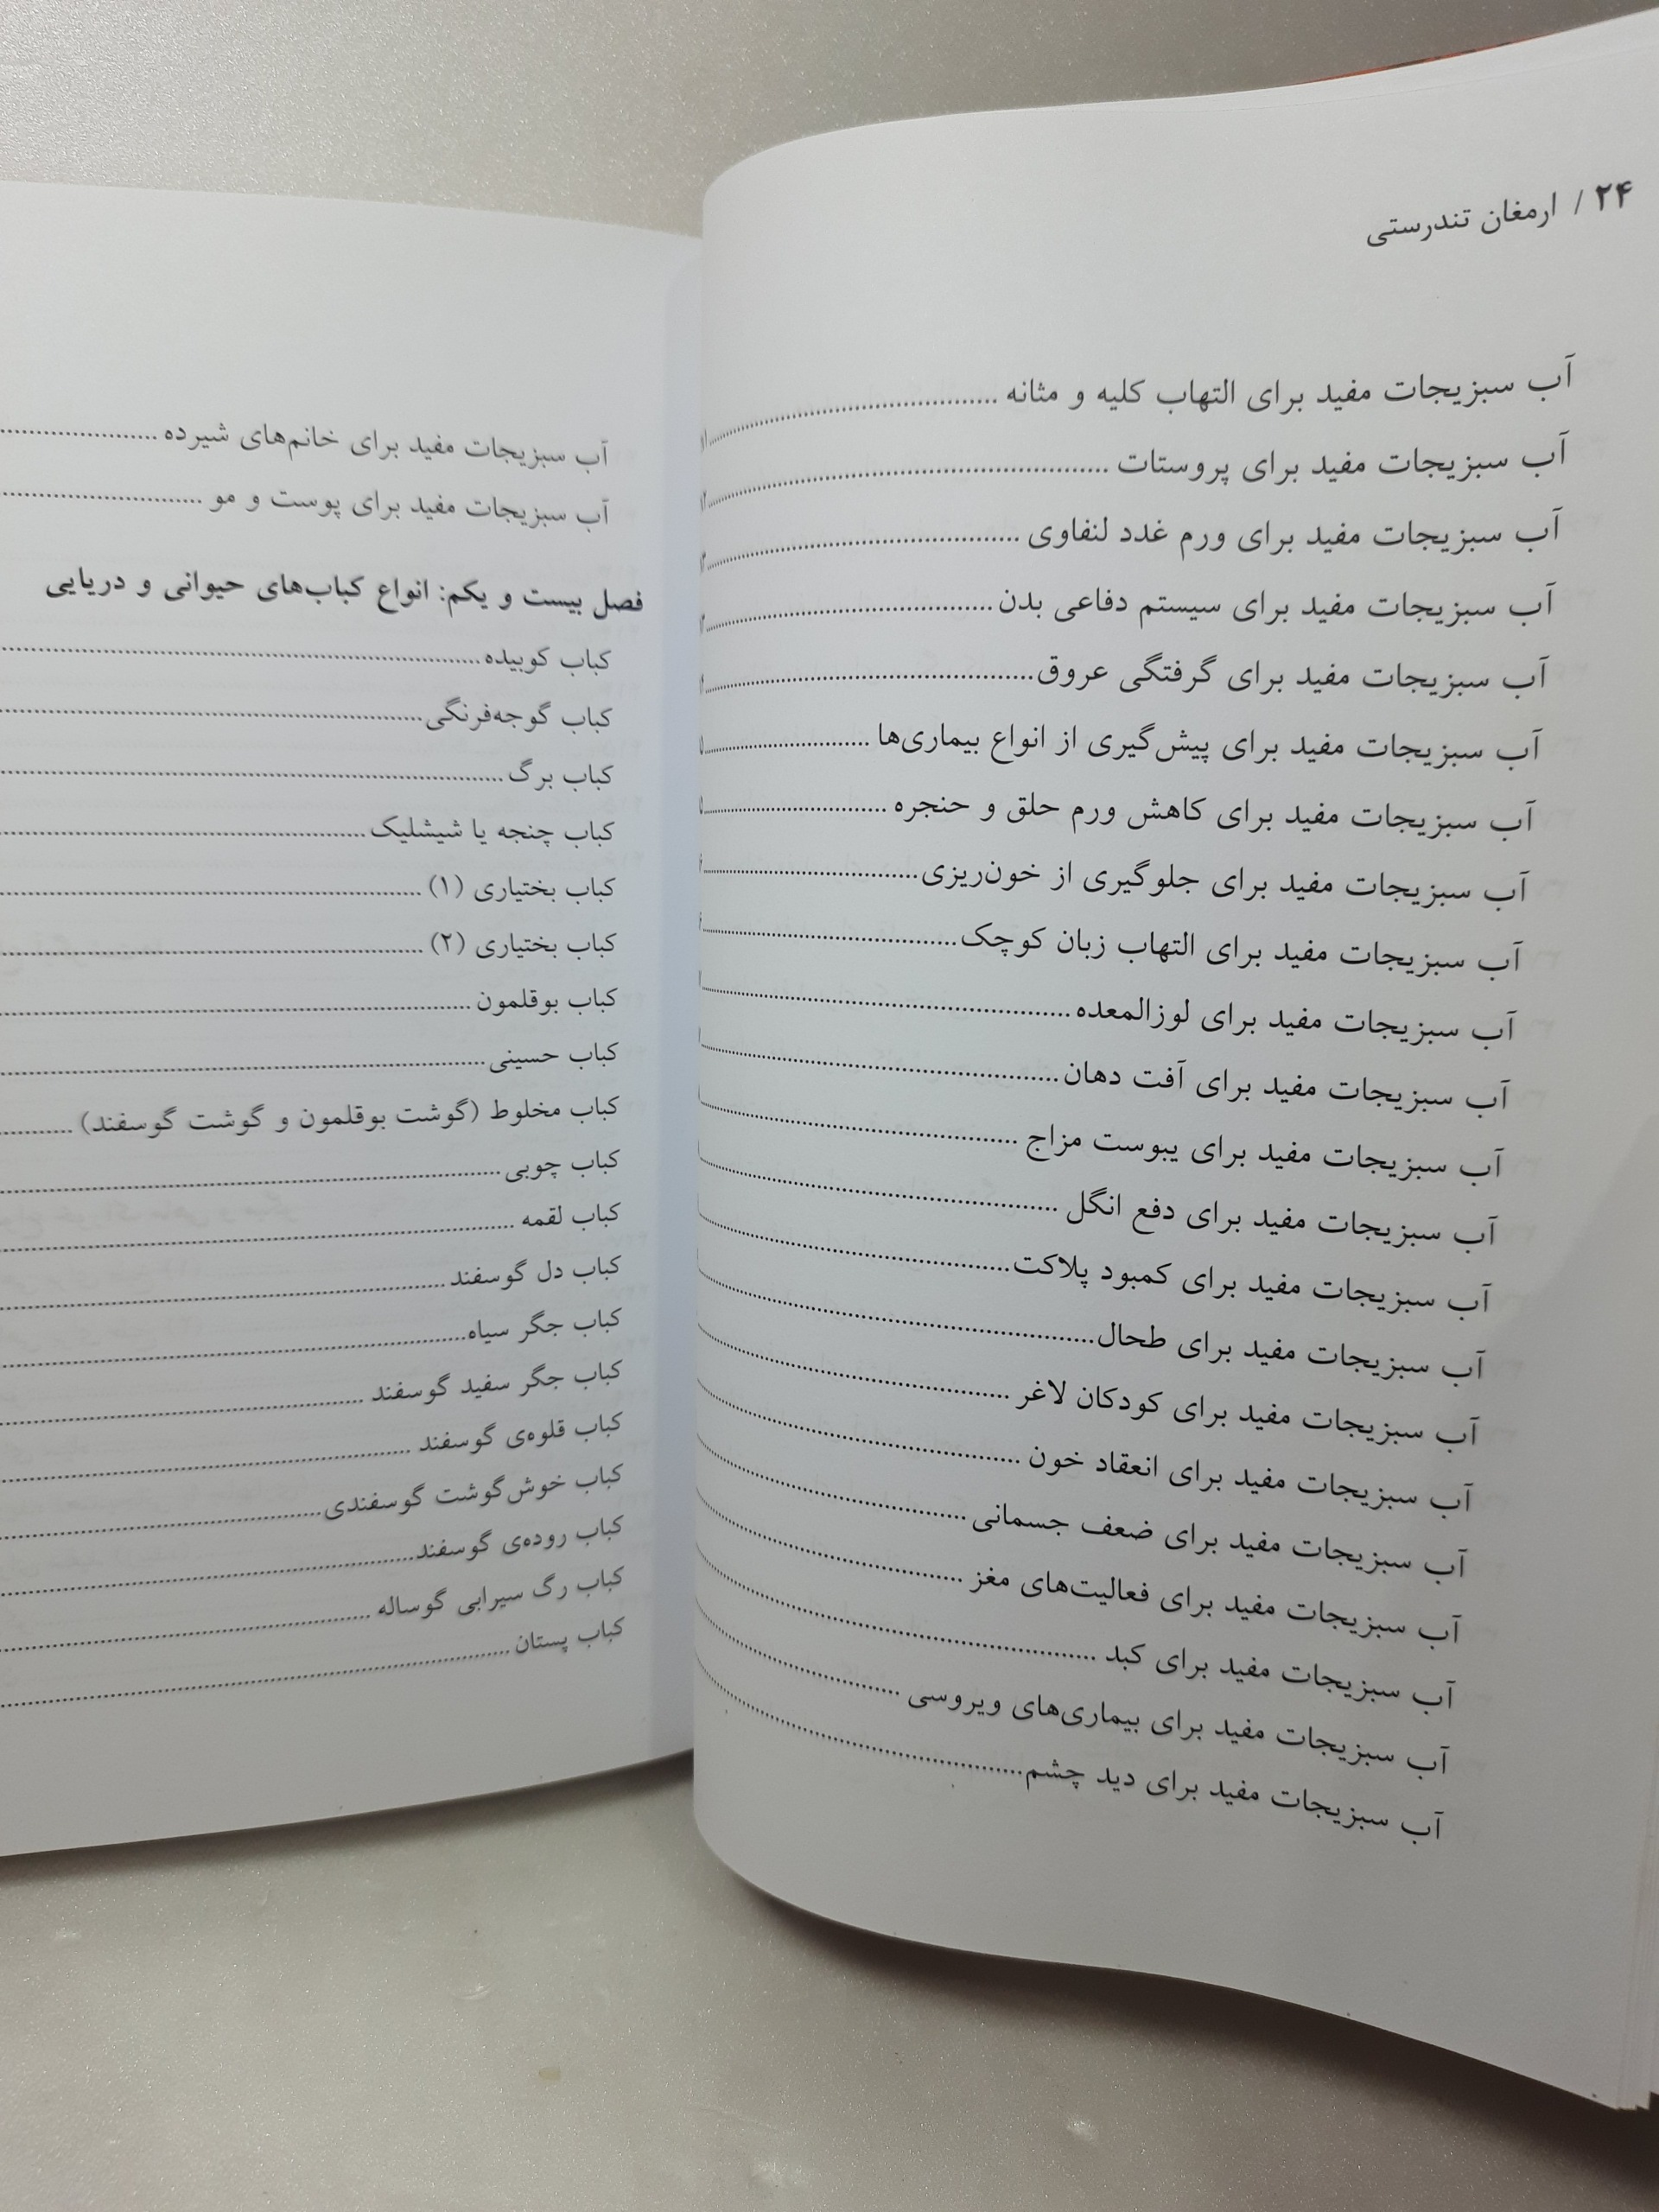 ۲۴ / ارمغان تندرستی
آب سبزیجات مفید برای التهاب کلیه و مثانه
آب سبزیجات مفید برای پروستات
آب سبزیجات مفید برای ورم غدد لنفاوی
آب سبزیجات مفید برای سیستم دفاعی بدن
آب سبزیجات مفید برای گرفتگی عروق
آب سبزیجات مفید برای پیش‌گیری از انواع بیماری‌ها
آب سبزیجات مفید برای کاهش ورم حلق و حنجره
آب سبزیجات مفید برای جلوگیری از خون‌ریزی
آب سبزیجات مفید برای التهاب زبان کوچک
آب سبزیجات مفید برای لوزالمعده
آب سبزیجات مفید برای آفت دهان
آب سبزیجات مفید برای یبوست مزاج
آب سبزیجات مفید برای دفع انگل
آب سبزیجات مفید برای کمبود پلاکت
آب سبزیجات مفید برای طحال
آب سبزیجات مفید برای کودکان لاغر
آب سبزیجات مفید برای انعقاد خون
آب سبزیجات مفید برای ضعف جسمانی
آب سبزیجات مفید برای فعالیت‌های مغز
آب سبزیجات مفید برای کبد
آب سبزیجات مفید برای بیماری‌های ویروسی
آب سبزیجات مفید برای دید چشم
آب سبزیجات مفید برای خانم‌های شیرده
آب سبزیجات مفید برای پوست و مو
فصل بیست و یکم: انواع کباب‌های حیوانی و دریایی
کباب کوبیده
کباب گوجه‌فرنگی
کباب برگ
کباب چنجه یا شیشلیک
کباب بختیاری (۱)
کباب بختیاری (۲)
کباب بوقلمون
کباب حسینی
کباب مخلوط (گوشت بوقلمون و گوشت گوسفند)
کباب چوبی
کباب لقمه
کباب دل گوسفند
کباب جگر سیاه
کباب جگر سفید گوسفند
کباب قلوه‌ی گوسفند
کباب خوش‌گوشت گوسفندی
کباب روده‌ی گوسفند
کباب رگ سیرابی گوساله
کباب پستان